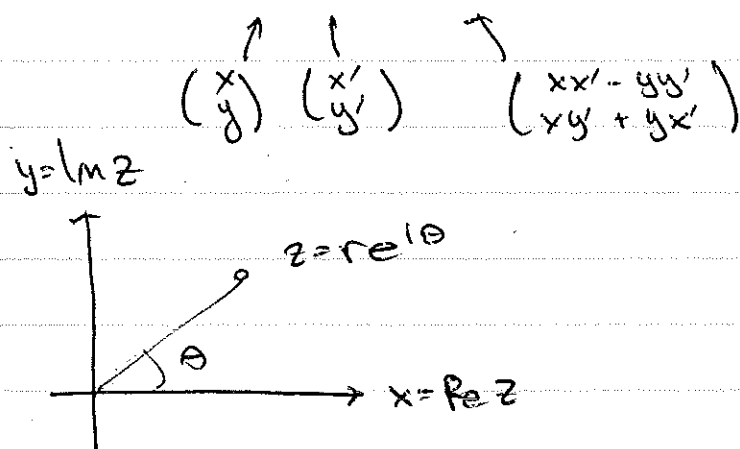 (x y) (x' y') (xx' - yy' xy' + yx')
y=Im z
z=re^iθ
θ
x=Re z